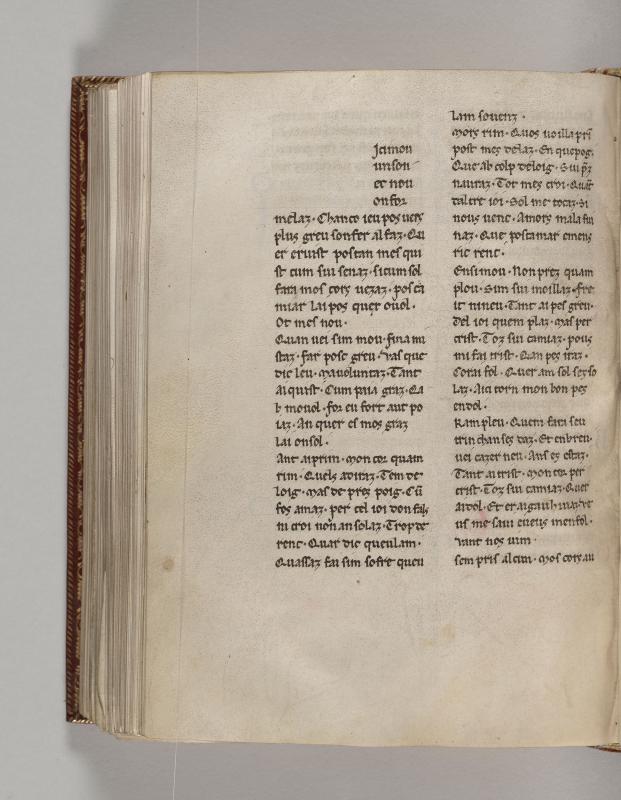 Jeu nou
un son
et nou
on for
melaz · Chanco ieu pos uers
plus greu son fer al faz · Qu
er eruist postan mes qui
st cum sui senaz · si cum sol
fara mos cors uezaz · pos ca
miar Lai pos quer o uol ·
Ot mes nou ·
Quan uei sim mou · fina mi
staz · far posc greu · Vas que
dic leu · Ma uoluntaz · Tant
ai quist · Cum paia graz · Qa
b mouol · for eu fort aut po
iaz · An quer es mos graz
Lai on sol ·
Ant aiprim · Mon cor quain
rim · Quels auiraz · Tem de
loig · Mas de prez poig · Cū
fos amaz · per cel ioi don fals
ni croi non an solaz · Trop de
renc · Quar dic queu lam ·
Quassaz fai sim sofre queu
Lam souenz ·
Mors rim · Quos uoilla pri
post mes delaz · En que pog ·
Que ab colp de loig · Sui pz
nauraz · Tot mes croi · Quat
dal tre ioi · Sol me tocaz · Si
nous uenc · Amors mala fui
naz · Que postamar emens
ric renc ·
Ensi mou · Non prez quam
plou · Sim sui moillaz · fre
it ni neu · Tant ai pes greu ·
Del ioi quem plaz · Mas per
crist · Toz sui camiaz · pous
mi fai trist · Qan pes iraz ·
Corai fol · Quer am sol ses so
laz · Aici torn mon bon pes
en dol ·
Ram pleu · Quem fara seu
trin chan ses daz · Et en breu ·
uei cazer neu · Ans es estaz ·
Tant ai trist · Mon cor per
crist · Toz sui camiaz · Quer
ai dol · Et er aigauh
us me saui eueus men fol ·
Vant nos uim ·
sem pris al cim · Mos cors au